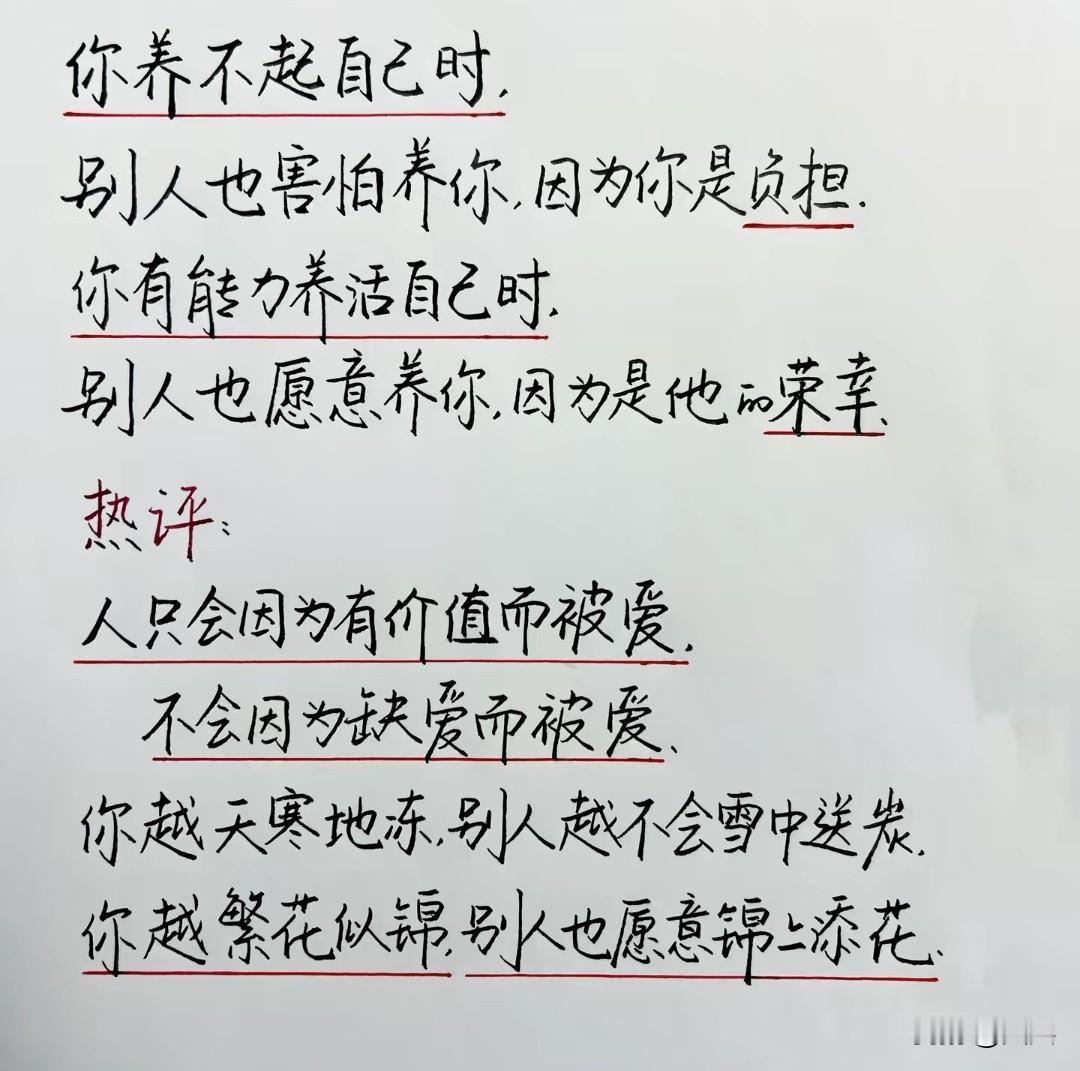 你养不起自己时.
别人也害怕养你,因为你是负担.
你有能力养活自己时.
别人也愿意养你,因为是他的荣幸.
热评:
人只会因为有价值而被爱.
不会因为缺爱而被爱.
你越天寒地冻,别人越不会雪中送炭.
你越繁花似锦,别人也愿意锦上添花.